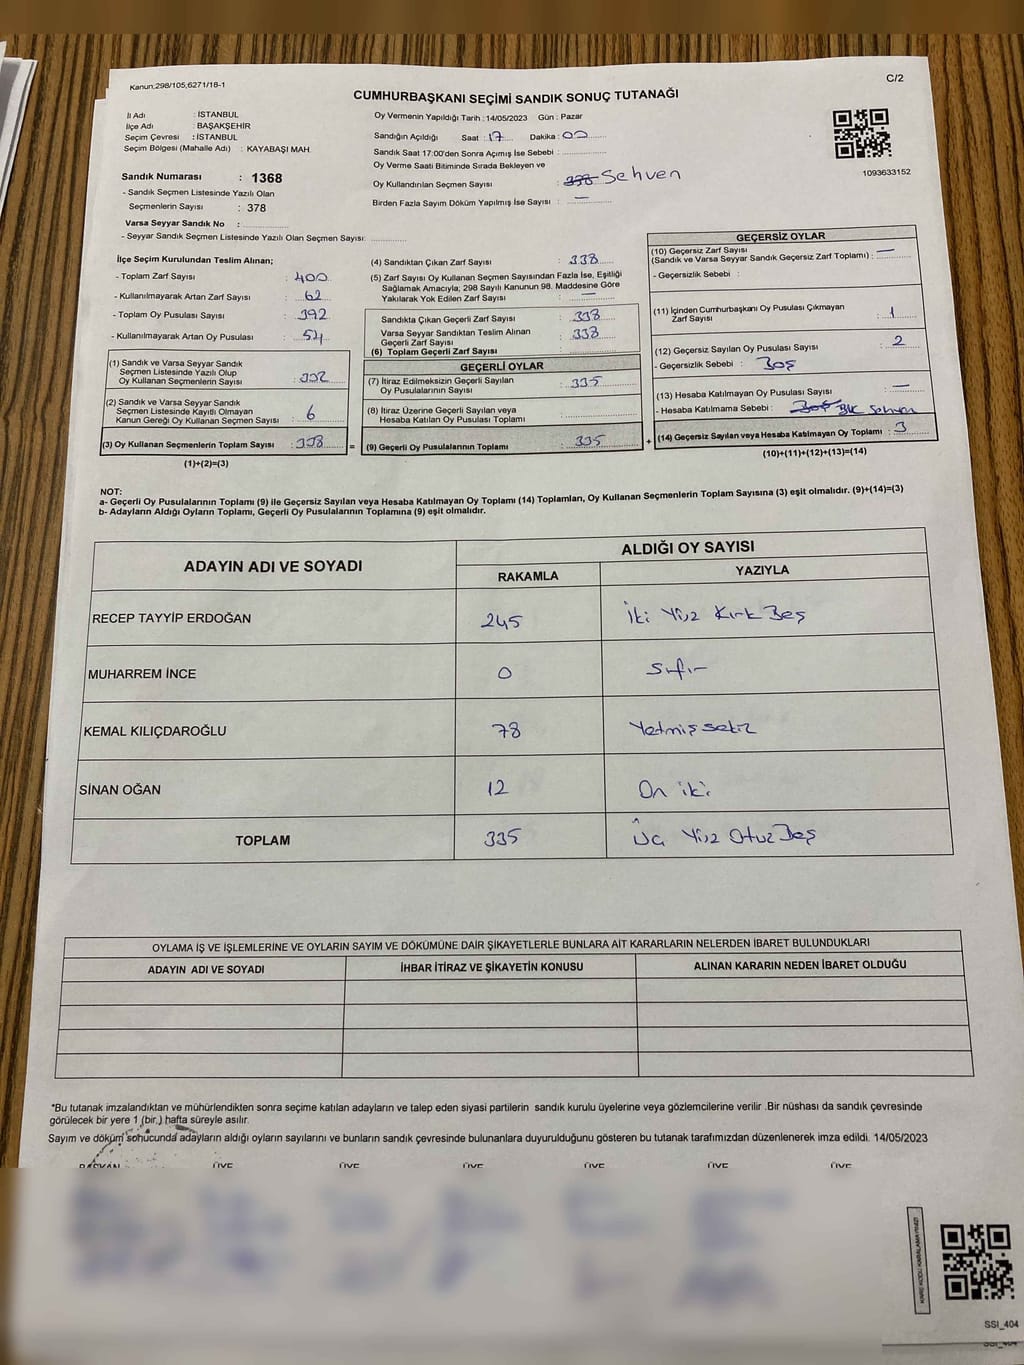 Kanun;298/105;6271/18-1
C/2
CUMHURBAŞKANI SEÇİMİ SANDIK SONUÇ TUTANAĞI
İl Adı : İSTANBUL
İlçe Adı : BAŞAKŞEHİR
Seçim Çevresi : İSTANBUL
Seçim Bölgesi (Mahalle Adı) : KAYABAŞI MAH.
Sandık Numarası : 1368
- Sandık Seçmen Listesinde Yazılı Olan
Seçmenlerin Sayısı : 378
Varsa Seyyar Sandık No :
- Seyyar Sandık Seçmen Listesinde Yazılı Olan Seçmen Sayısı:
Oy Vermenin Yapıldığı Tarih : 14/05/2023 Gün : Pazar
Sandığın Açıldığı Saat : 17 Dakika : 00
Sandık Saat 17:00'den Sonra Açımış İse Sebebi :
Oy Verme Saati Bitiminde Sırada Bekleyen ve
Oy Kullandırılan Seçmen Sayısı : 338 Sehven
Birden Fazla Sayım Döküm Yapılmış İse Sayısı : —
1093633152
İlçe Seçim Kurulundan Teslim Alınan;
- Toplam Zarf Sayısı : 400
- Kullanılmayarak Artan Zarf Sayısı : 62
- Toplam Oy Pusulası Sayısı : 392
- Kullanılmayarak Artan Oy Pusulası : 54
(1) Sandık ve Varsa Seyyar Sandık
Seçmen Listesinde Yazılı Olup
Oy Kullanan Seçmenlerin Sayısı : 332
(2) Sandık ve Varsa Seyyar Sandık
Seçmen Listesinde Kayıtlı Olmayan
Kanun Gereği Oy Kullanan Seçmen Sayısı : 6
(3) Oy Kullanan Seçmenlerin Toplam Sayısı : 338
(1)+(2)=(3)
(4) Sandıktan Çıkan Zarf Sayısı : 338
(5) Zarf Sayısı Oy Kullanan Seçmen Sayısından Fazla İse, Eşitliği
Sağlamak Amacıyla; 298 Sayılı Kanunun 98. Maddesine Göre
Yakılarak Yok Edilen Zarf Sayısı : —
Sandıkta Çıkan Geçerli Zarf Sayısı : 338
Varsa Seyyar Sandıktan Teslim Alınan
Geçerli Zarf Sayısı : 338
(6) Toplam Geçerli Zarf Sayısı :
GEÇERLİ OYLAR
(7) İtiraz Edilmeksizin Geçerli Sayılan
Oy Pusulalarının Sayısı : 335
(8) İtiraz Üzerine Geçerli Sayılan veya
Hesaba Katılan Oy Pusulası Toplamı :
= (9) Geçerli Oy Pusulalarının Toplamı : 335 +
GEÇERSİZ OYLAR
(10) Geçersiz Zarf Sayısı
(Sandık ve Varsa Seyyar Sandık Geçersiz Zarf Toplamı) : —
- Geçersizlik Sebebi :
(11) İçinden Cumhurbaşkanı Oy Pusulası Çıkmayan
Zarf Sayısı : 1
(12) Geçersiz Sayılan Oy Pusulası Sayısı : 2
- Geçersizlik Sebebi : Boş
(13) Hesaba Katılmayan Oy Pusulası Sayısı : —
- Hesaba Katılmama Sebebi : Boş Sehven
(14) Geçersiz Sayılan veya Hesaba Katılmayan Oy Toplamı : 3
(10)+(11)+(12)+(13)=(14)
NOT:
a- Geçerli Oy Pusulalarının Toplamı (9) ile Geçersiz Sayılan veya Hesaba Katılmayan Oy Toplamı (14) Toplamları, Oy Kullanan Seçmenlerin Toplam Sayısına (3) eşit olmalıdır. (9)+(14)=(3)
b- Adayların Aldığı Oyların Toplamı, Geçerli Oy Pusulalarının Toplamına (9) eşit olmalıdır.
ADAYIN ADI VE SOYADI
ALDIĞI OY SAYISI
RAKAMLA
YAZIYLA
RECEP TAYYİP ERDOĞAN 245 İki Yüz Kırk Beş
MUHARREM İNCE 0 Sıfır
KEMAL KILIÇDAROĞLU 78 Yetmiş sekiz
SİNAN OĞAN 12 On iki
TOPLAM 335 Üç Yüz Otuz Beş
OYLAMA İŞ VE İŞLEMLERİNE VE OYLARIN SAYIM VE DÖKÜMÜNE DAİR ŞİKAYETLERLE BUNLARA AİT KARARLARIN NELERDEN İBARET BULUNDUKLARI
ADAYIN ADI VE SOYADI
İHBAR İTİRAZ VE ŞİKAYETİN KONUSU
ALINAN KARARIN NEDEN İBARET OLDUĞU
*Bu tutanak imzalandıktan ve mühürlendikten sonra seçime katılan adayların ve talep eden siyasi partilerin sandık kurulu üyelerine veya gözlemcilerine verilir .Bir nüshası da sandık çevresinde
görülecek bir yere 1 (bir.) hafta süreyle asılır.
Sayım ve döküm sonucunda adayların aldığı oyların sayılarını ve bunların sandık çevresinde bulunanlara duyurulduğunu gösteren bu tutanak tarafımızdan düzenlenerek imza edildi. 14/05/2023
BAŞKAN ÜYE ÜYE ÜYE ÜYE ÜYE ÜYE
KARE KODU KARALAMAYINIZ!
SSI_404